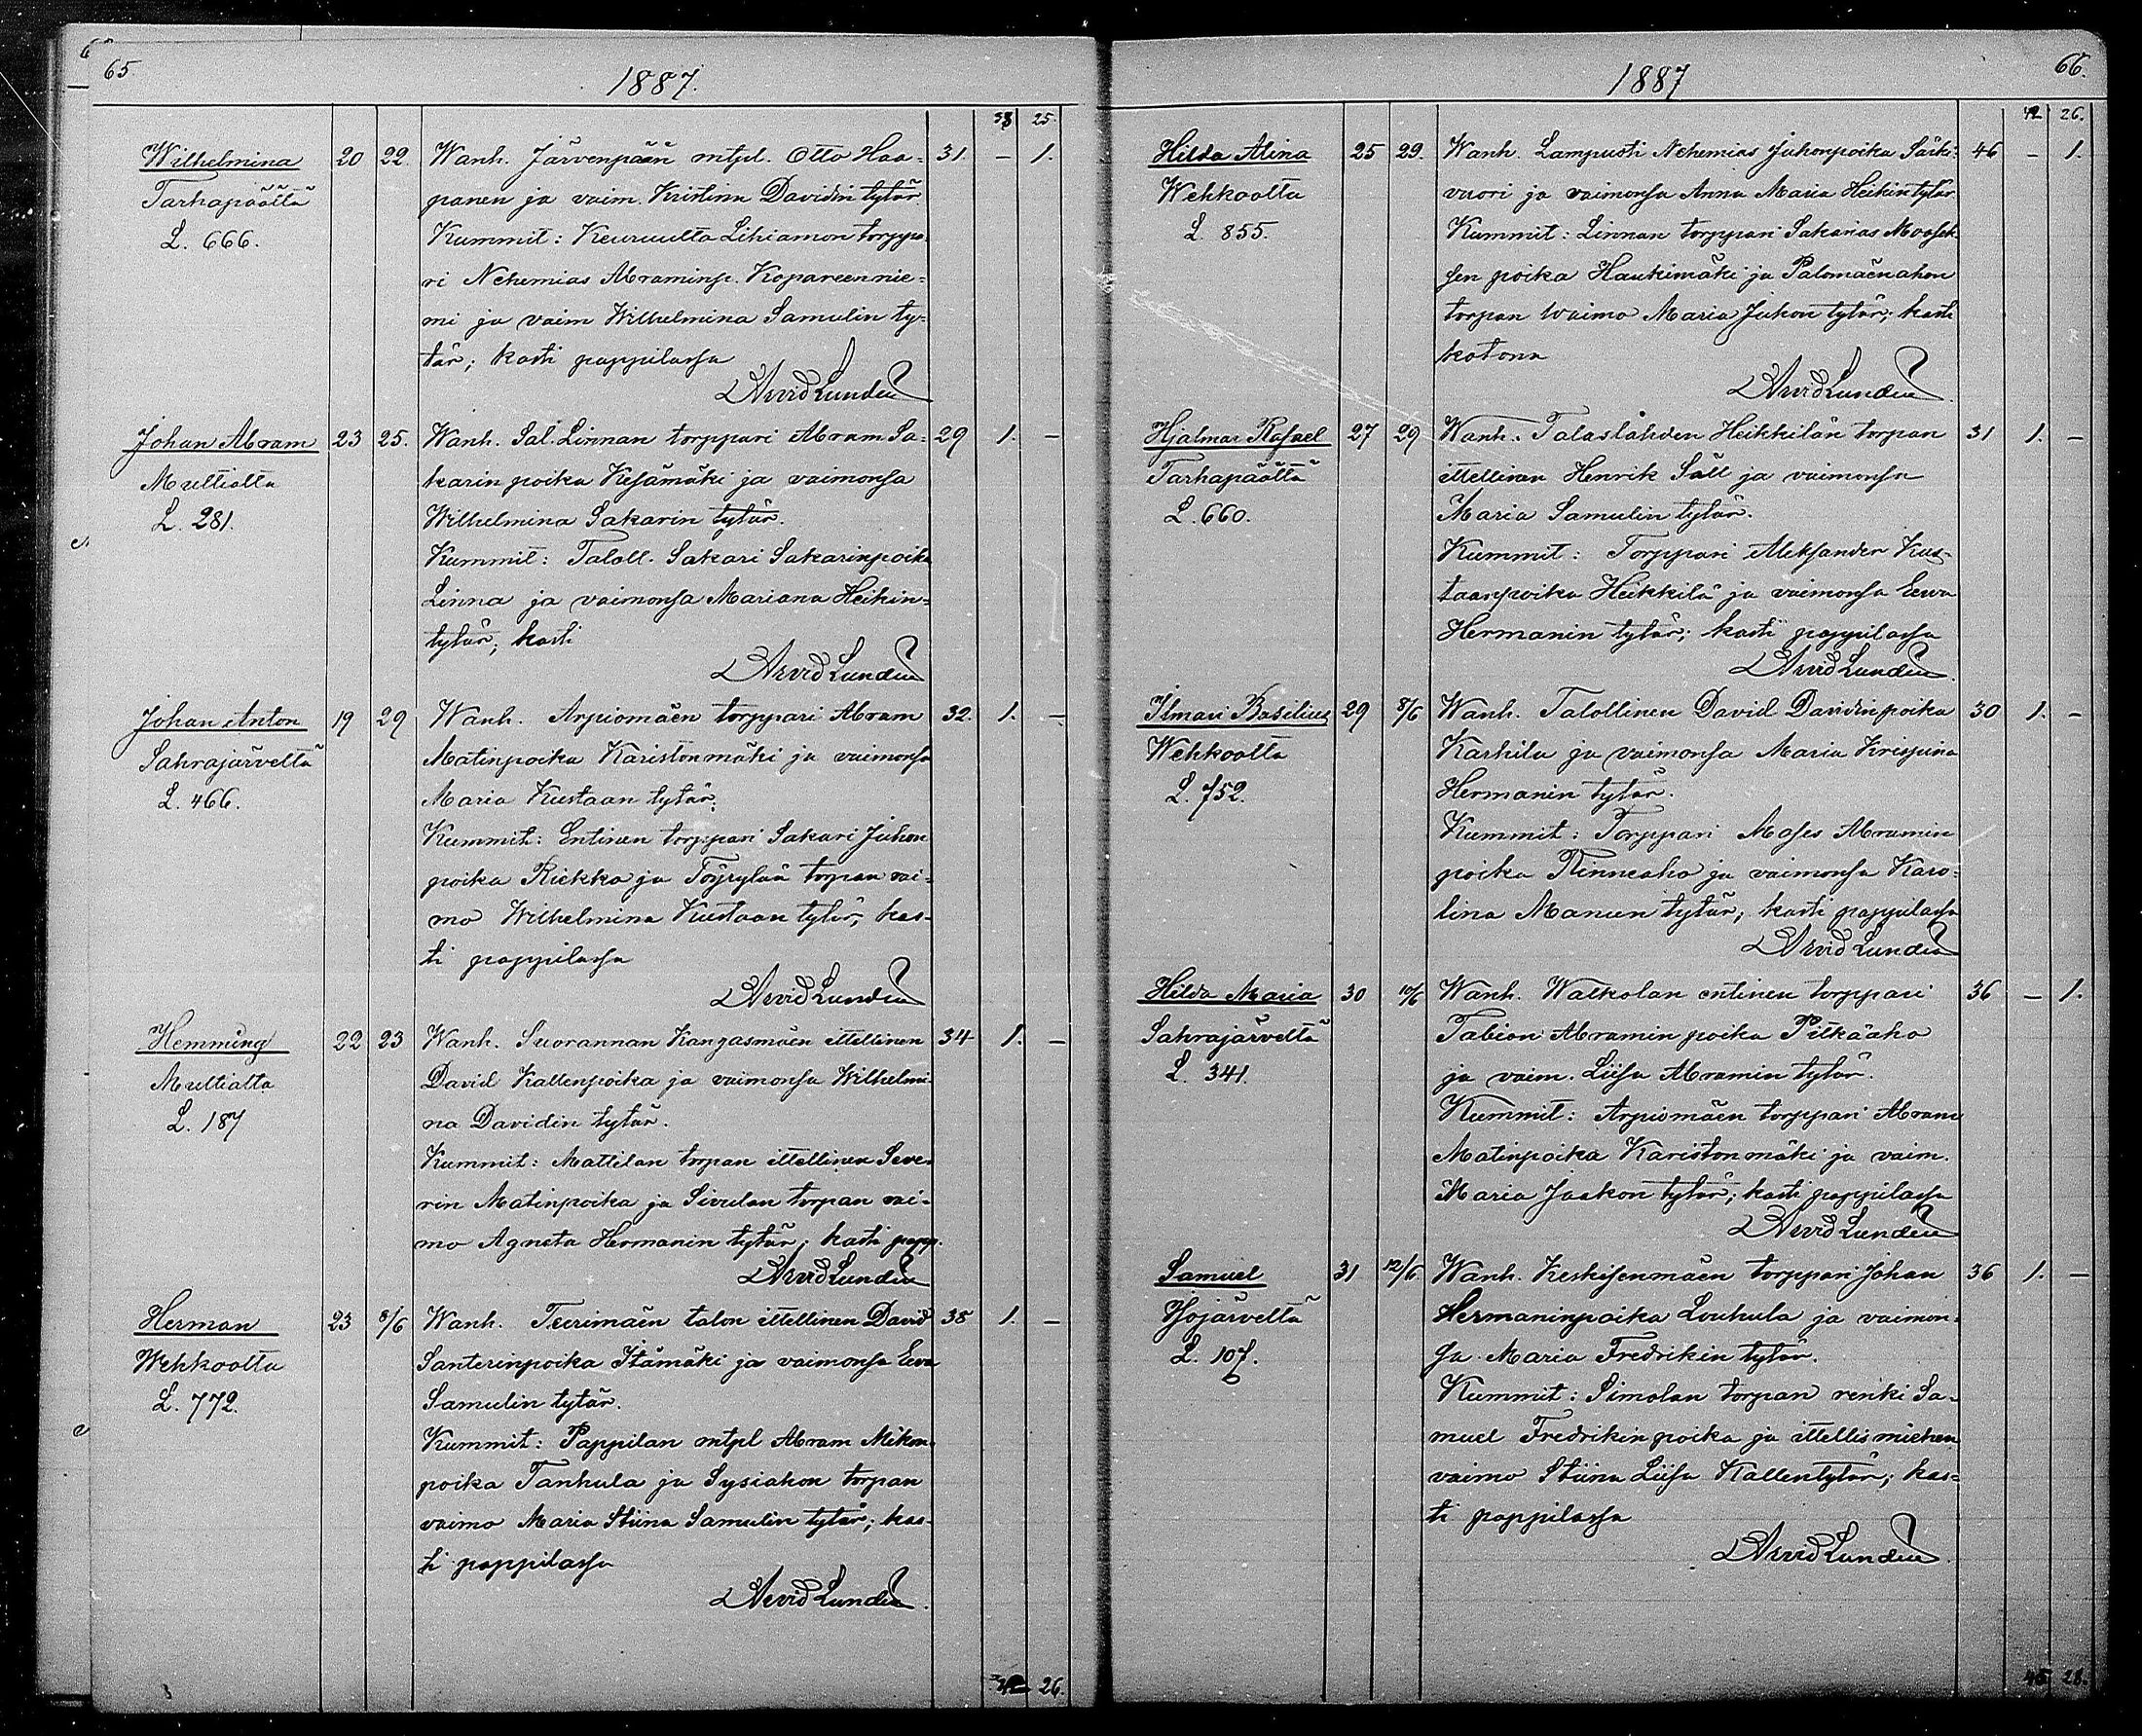 65
1887.
38 25.
Wilhelmina 20 22. Wanh. Järvenpään mtpl. Otto Haa- 31. – 1.
Tarhapäältä panen ja vaim. Kristina Davidin tytär
L. 666. Kummit: Keuruulta Lihiamon torppa-
ri Nehemias Abraminp. Kopareennie-
mi ja vaim Wilhelmina Samulin ty-
tär; kasti pappilassa
Arvid Lunden
Johan Abram 23 25. Wanh. Sal. Linnan torppari Abram Sa- 29 1. –
Multialta karin poika Kesämäki ja vaimonsa
L. 281. Wilhelmina Sakarin tytär.
Kummit: Taloll. Sakari Sakarinpoika
Linna ja vaimonsa Mariana Heikin-
tytär; kasti
Arvid Lunden
Johan Anton 19 29 Wanh. Arpiomäen torppari Abram 32. 1. –
Sahrajärveltä Matinpoika Karistonmäki ja vaimonsa
L. 466. Maria Kustaan tytär.
Kummit: Entinen torppari Sakari Juhon
poika Riekko ja Töyrylän torpan vai-
mo Wilhelmina Kustaan tytär; kas-
ti pappilassa
Arvid Lunden
Hemming 22 23 Wanh. Suorannan Kangasmäen itellinen 34 1. –
Multialta David Kallenpoika ja vaimonsa Wilhelmi-
L. 187 na Davidin tytär.
Kummit: Mattilan torpan itellinen Seve-
rin Matinpoika ja Sivulan torpan vai-
mo Agneta Hermanin tytär; kasti papp.
Arvid Lunden
Herman 23 8/6 Wanh. Teerimäen talon itellinen David 38 1. –
Wehkoolta Santerinpoika Itämäki ja vaimonsa Eeva
L. 772. Samulin tytär.
Kummit: Pappilan mtpl Abram Mikon-
poika Tanhula ja Sysiahon torpan
vaimo Maria Stiina Samulin tytär; kas-
ti pappilassa
Arvid Lunden.
42 26.
66.
1887
42 26.
Hilda Alina 25 29. Wanh. Lampusti Nehemias Juhonpoika Särki- 46 – 1.
Wehkoolta vuori ja vaimonsa Anna Maria Heikin tytär
L. 855. Kummit: Linnan torppari Sakarias Moosek-
sen poika Haukimäki ja Palomäenahon
torpan waimo Maria Juhon tytär; kasti
kotona
Arvid Lunden.
Hjalmar Rafael 27 29 Wanh. Talaslahden Heikkilän torpan 31 1. –
Tarhapäältä itellinen Henrik Säll ja vaimonsa
L. 660. Maria Samulin tytär.
Kummit: Torppari Aleksander Kus-
taanpoika Heikkilä ja vaimonsa Eewa
Hermanin tytär; kasti pappilassa
Arvid Lunden.
Ilmari Basilius 29 8/6 Wanh. Talollinen David Davidinpoika 30 1. –
Wehkoolta Karhila ja vaimonsa Maria Krispina
L. 752. Hermanin tytär.
Kummit: Torppari Moses Abramin
poika Rinneaho ja vaimonsa Karo-
lina Manun tytär; kasti pappilassa
Arvid Lunden
Hilda Maria 30 10/6 Wanh. Walkolan entinen torppari 36 – 1.
Sahrajärveltä Tabion Abramin poika Pitkäaho
L. 341. ja vaim. Liisa Abramin tytär.
Kummit: Arpiomäen torppari Abram
Matinpoika Karistonmäki ja vaim.
Maria Jaakon tytär; kasti pappilassa
Arvid Lunden
Samuel 31 12/6. Wanh. Keskisenmäen torppari Johan 36 1. –
Hermaninpoika Louhula ja vaimon-
L. 107. sa Maria Fredrikin tytär.
Kummit: Simolan torpan renki Sa-
muel Fredrikin poika ja itellismiehen
vaimo Stiina Liisa Kallentytär; kas-
ti pappilassa
Arvid Lunden.
45 28.